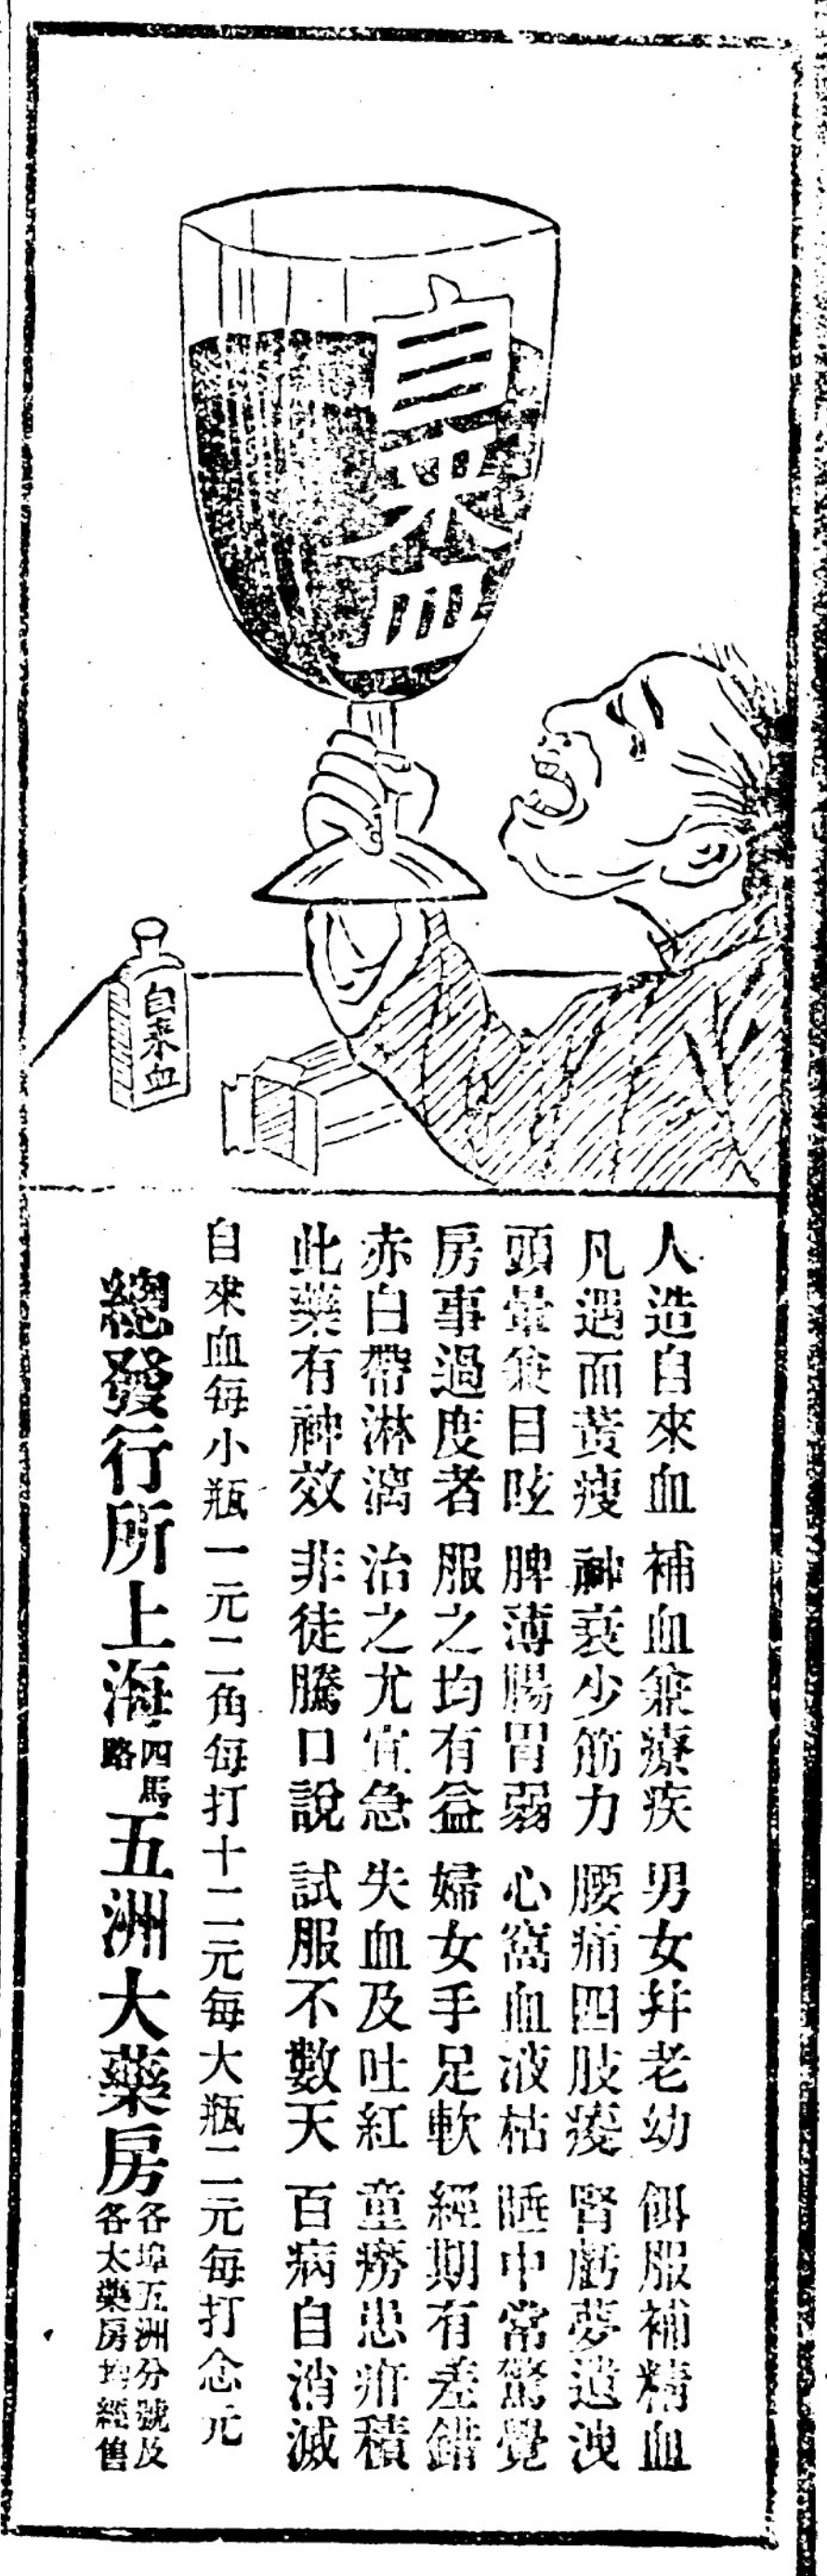 自來血
自來血
人造自來血 補血兼療疾 男女并老幼 餌服補精血
凡遇面黃瘦 神衰少筋力 腰痛四肢痠 腎虧夢遺洩
頭暈兼目眩 脾薄腸胃弱 心窩血液枯 睡中常驚覺
房事過度者 服之均有益 婦女手足軟 經期有差錯
赤白帶淋漓 治之尤宜急 失血及吐紅 童癆患疳積
此藥有神效 非徒騰口說 試服不數天 百病自消滅
自來血每小瓶一元二角每打十二元每大瓶二元每打念元
總發行所上海四馬路五洲大藥房各埠五洲分號及各大藥房均經售